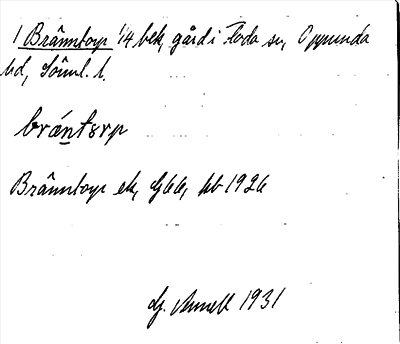 1 Bränntorp 1/4 bek, gård i Floda sn, Oppunda
hd, Söml. l.
bräntsrp
Bränntorp ek, Gbb, kb 1926
Gj. Annell 1931